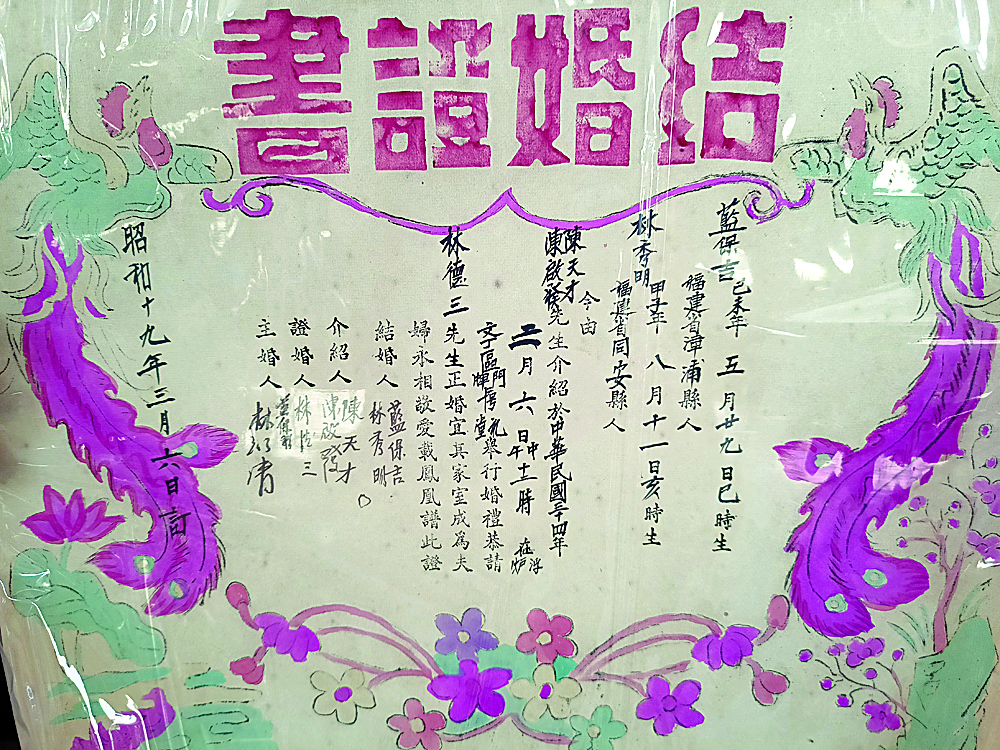 結婚證書
藍保吉 己未年 五月廿九日巳時生
福建省漳浦縣人
林秀明 甲子年 八月十一日亥時生
福建省同安縣人
今由
陳天才
陳啟發先生介紹於中華民國三十四年
三月六日中午十二時 在浮
舉行婚禮恭請
林德三先生正婚宜其家室成為夫
婦永相敬愛載鳳凰譜此證
結婚人 藍保吉
林秀明
介紹人 陳天才
陳啟發
證婚人 林德三
主婚人
昭和十九年三月六日訂